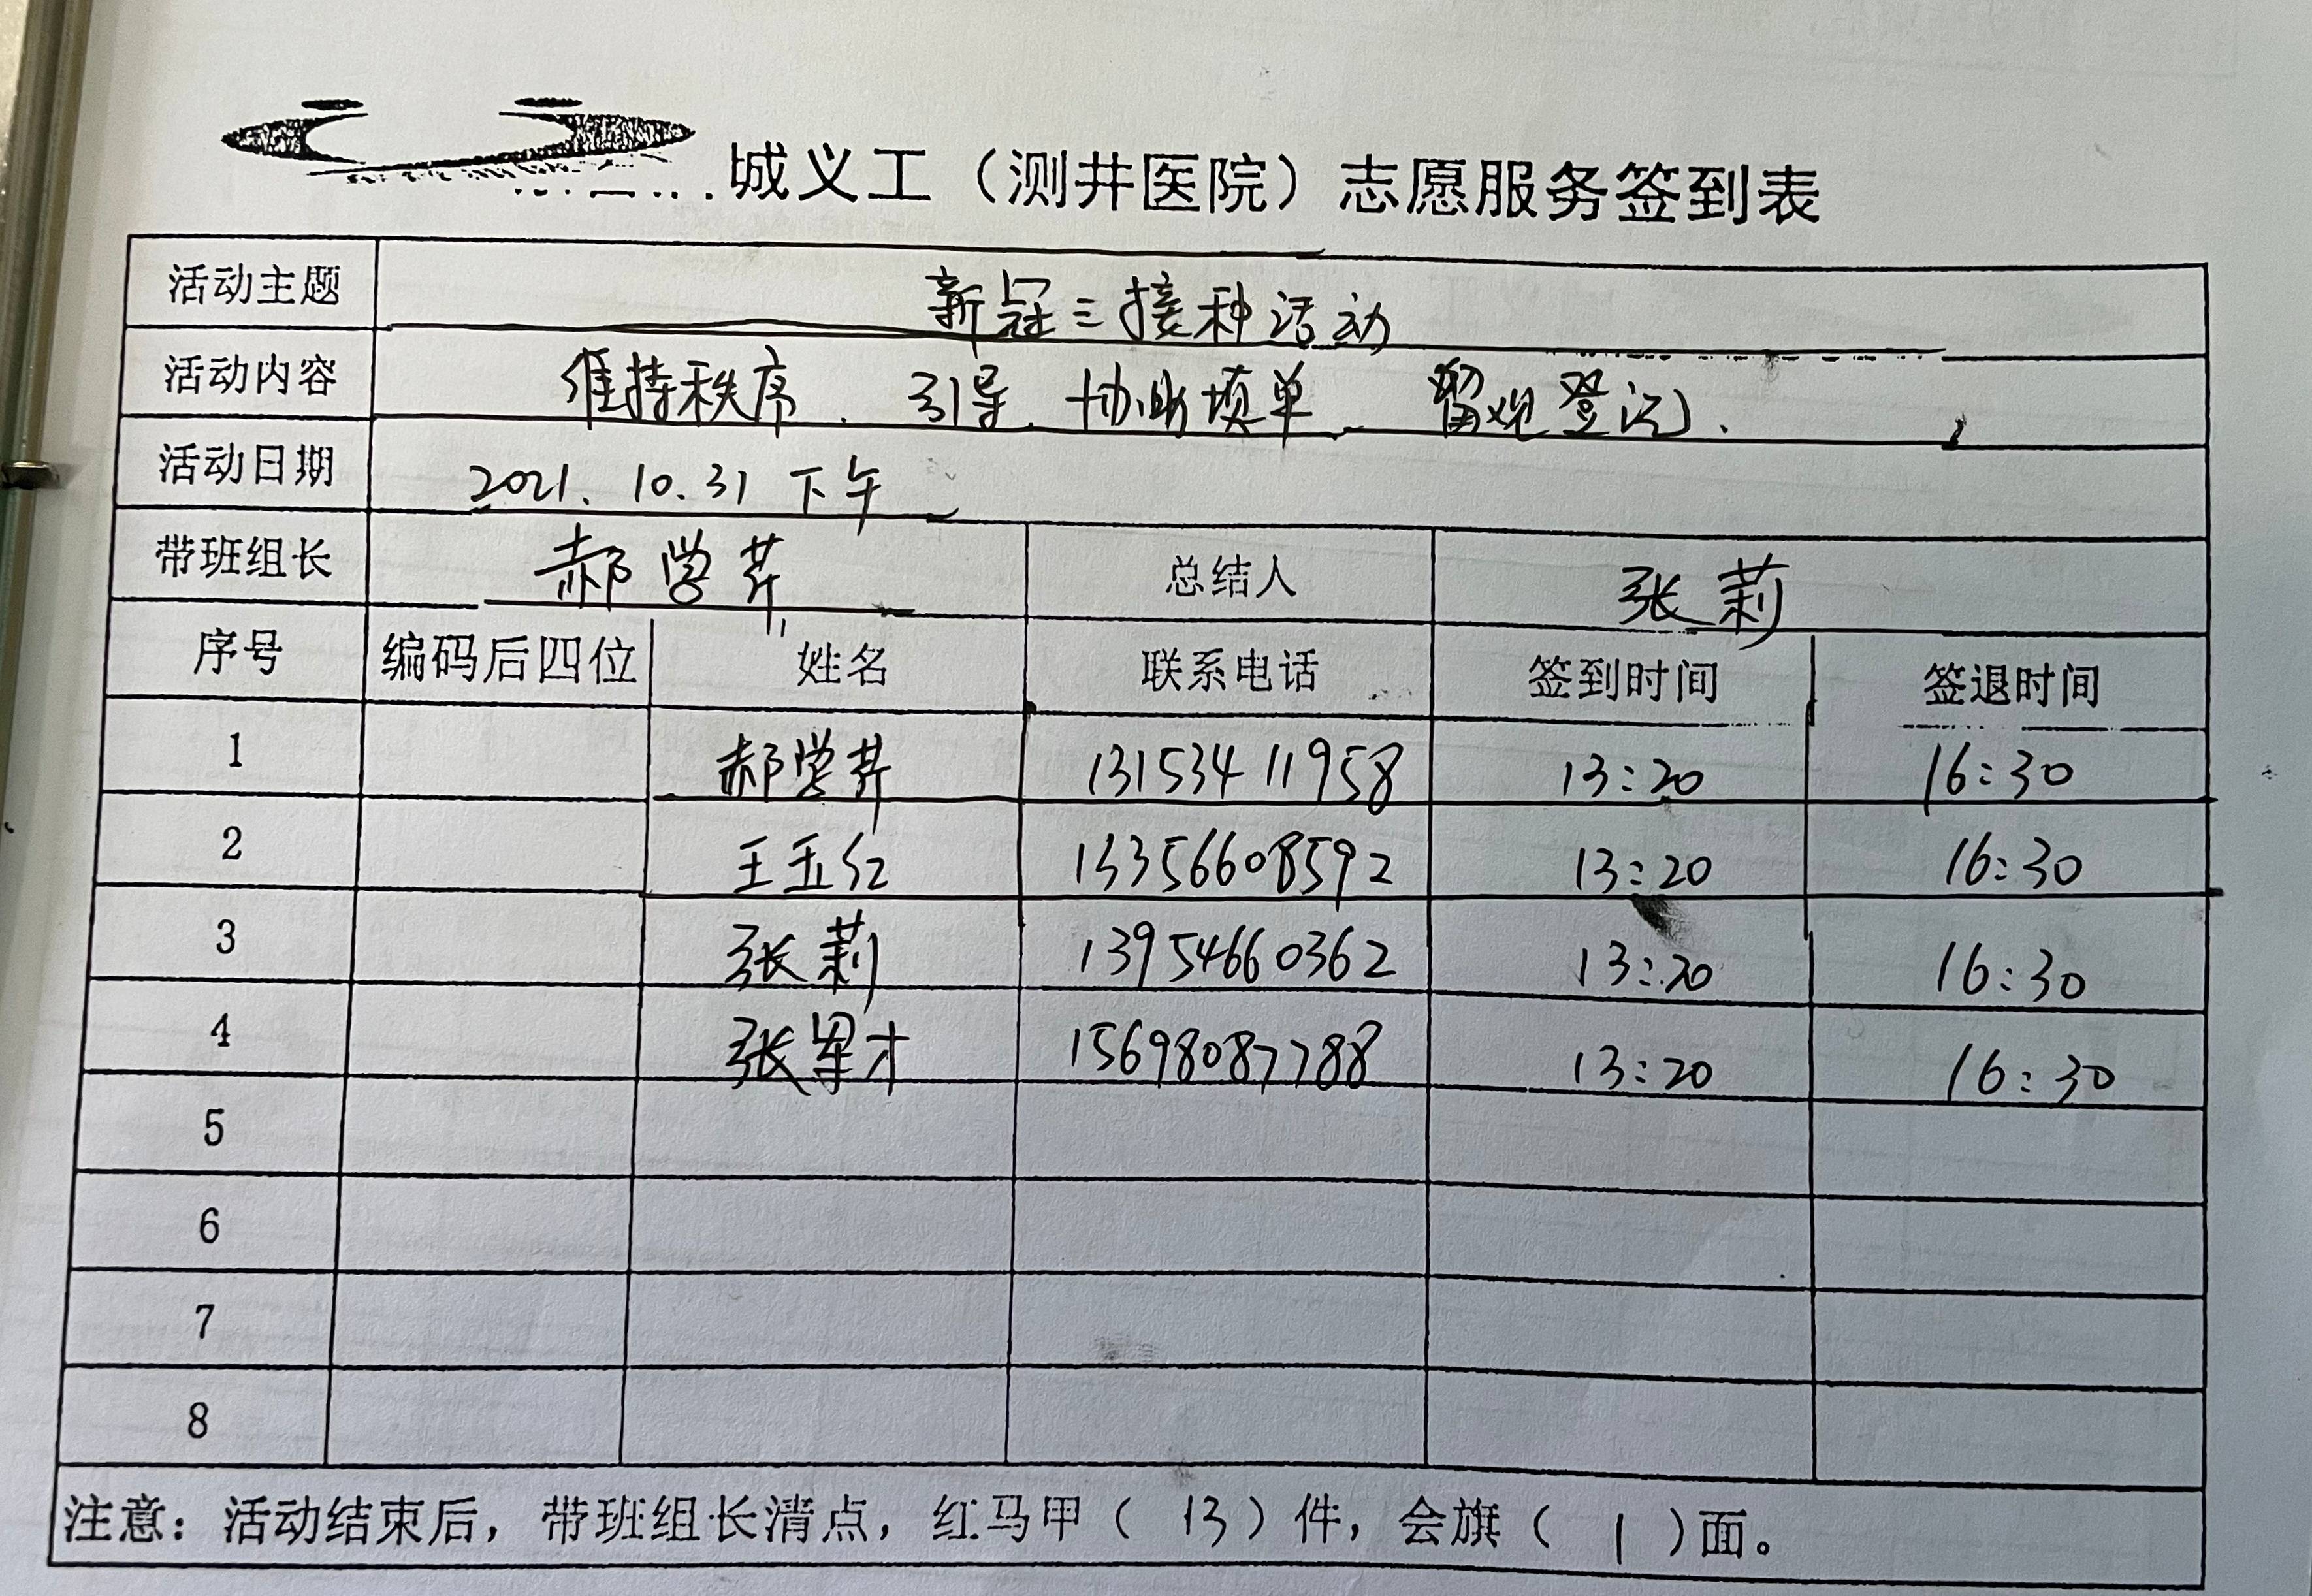 城义工（测井医院）志愿服务签到表
活动主题 新冠三接种活动
活动内容 维持秩序、引导、协助填单、留观登记.
活动日期 2021.10.31 下午
带班组长 郝学芹 总结人 张莉
序号 编码后四位 姓名 联系电话 签到时间 签退时间
1 郝学芹 13153411958 13:20 16:30
2 王玉红 13356608592 13:20 16:30
3 张莉 13954660362 13:20 16:30
4 张 才 15698087788 13:20 16:30
5
6
7
8
注意：活动结束后，带班组长清点，红马甲（ 13 ）件，会旗（ 1 ）面。